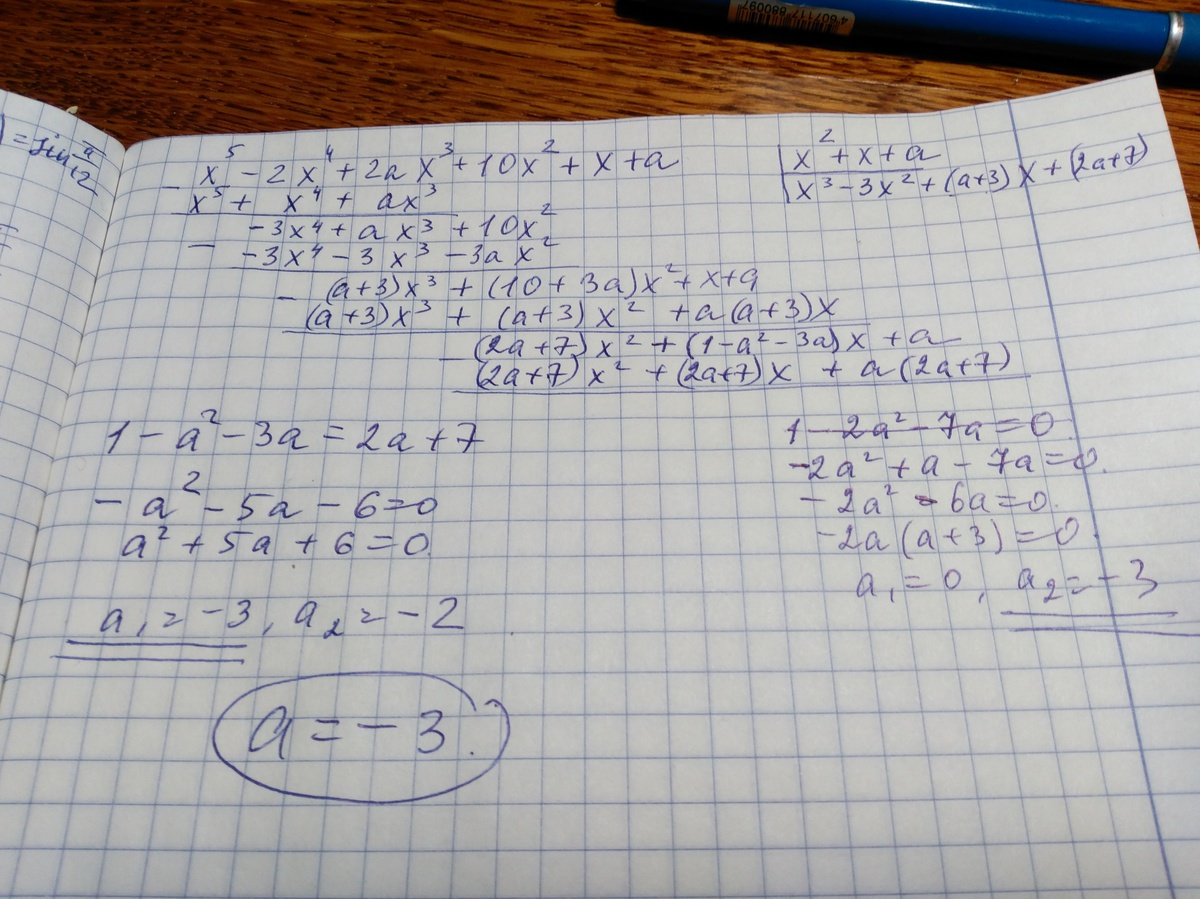 4607117 880097
) = sin π/12
x⁵ - 2x⁴ + 2ax³ + 10x² + x + a | x² + x + a
- x⁵ + x⁴ + ax³ | x³ - 3x² + (a+3)x + (2a+7)
-3x⁴ + ax³ + 10x²
- -3x⁴ - 3x³ - 3ax²
(a+3)x³ + (10+3a)x² + x + a
- (a+3)x³ + (a+3)x² + a(a+3)x
(2a+7)x² + (1-a²-3a)x + a
- (2a+7)x² + (2a+7)x + a(2a+7)
1 - a² - 3a = 2a + 7
- a² - 5a - 6 = 0
a² + 5a + 6 = 0
a₁ = -3, a₂ = -2
1 - 2a² - 7a = 0.
-2a² + a - 7a = 0.
-2a² - 6a = 0.
-2a(a+3) = 0.
a₁ = 0, a₂ = -3
a = -3.